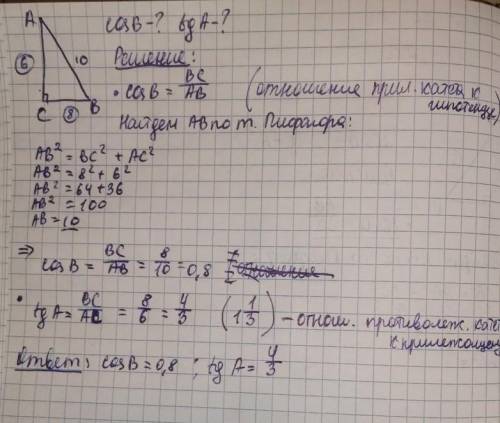 A
cosB-? tgA-?
6
10
C
8
B
Решение:
• cosB = BC/AB (отношение прил. катета к гипотенузе)
Найдём AB по т. Пифагора:
AB² = BC² + AC²
AB² = 8² + 6²
AB² = 64 + 36
AB² = 100
AB = 10
⇒ cosB = BC/AB = 8/10 = 0,8
• tgA = BC/AC = 8/6 = 4/3 (1 1/3) – отнош. противолеж. катета к прилежащему
Ответ: cosB = 0,8 ; tgA = 4/3